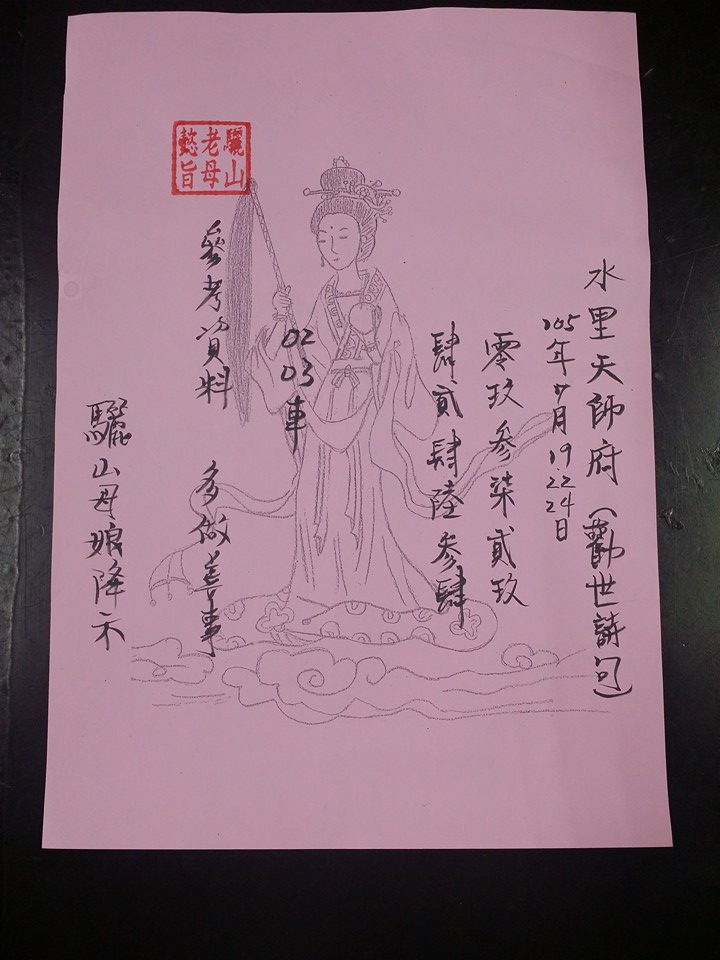 水里天師府(勸世詩句)
105年11月19.22.24日
零玖參柒貳玖
肆貳肆陸參肆
02
03車
驪山
老母
懿旨
參考資料 多做善事
驪山母娘降示